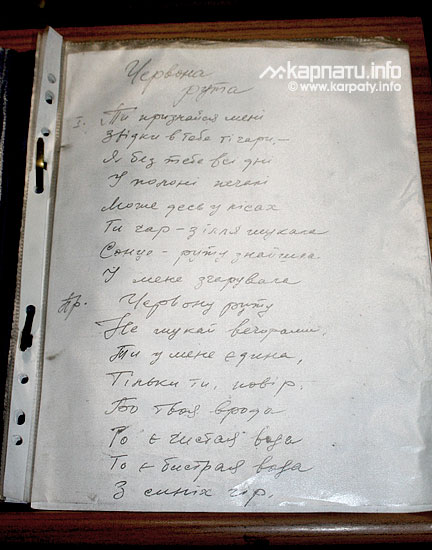 карпати.info
© www.karpaty.info
Червона
рута
I. Ти признайся мені
Звідки в тебе ті чари,–
Я без тебе всі дні
У полоні печалі
Може десь у лісах
Ти чар-зілля шукала
Сонце-руту знайшла
У мене зчарувала
Пр. Червону руту
Не шукай вечорами,
Ти у мене єдина,
Тільки ти, повір.
Бо твоя врода
То є чистая вода
То є бистрая вода
З синіх гір.